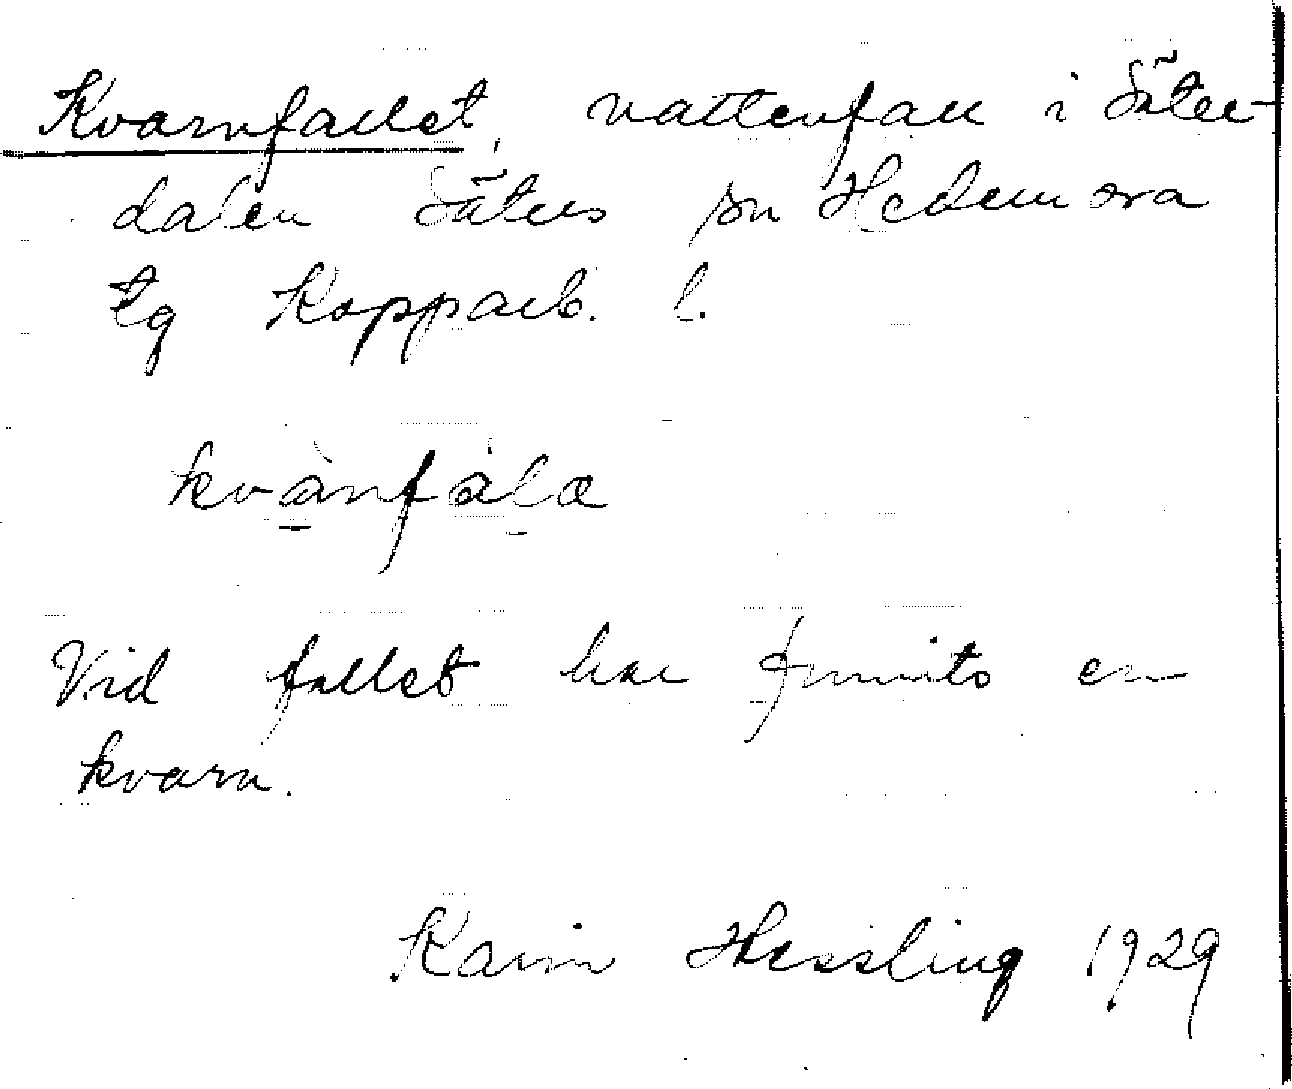 Kvarnfallet, vattenfall i Säter-
dalen Säters sn Hedemora
tg Kopparb. l.
kvànfàla
Vid fallet har funnits en
kvarn.
Karin Hessling 1929